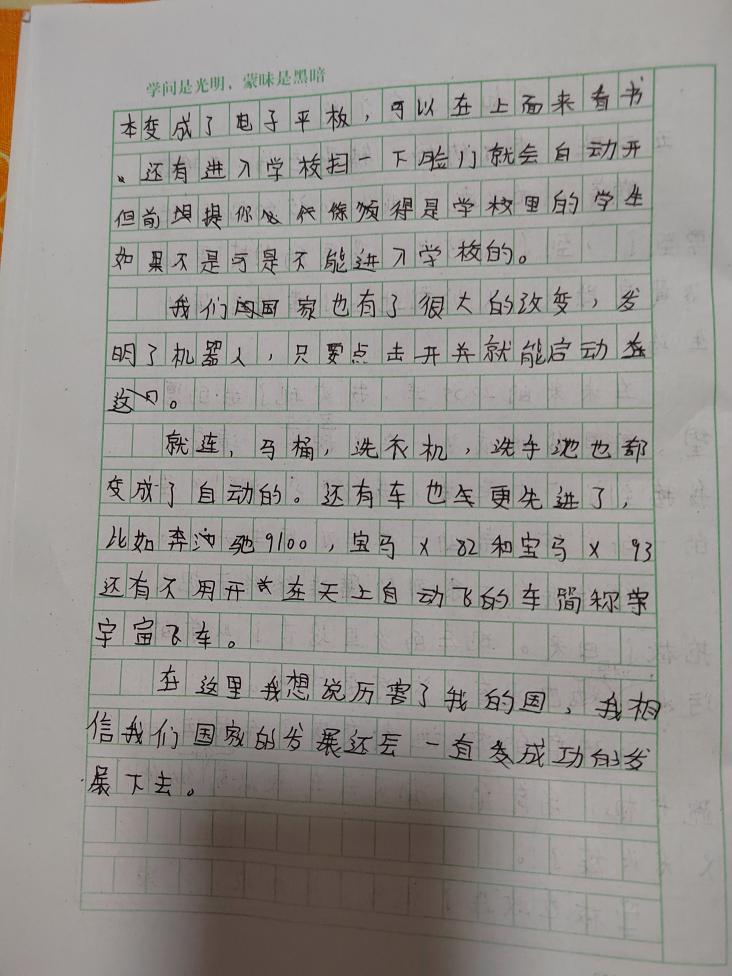 学问是光明，蒙昧是黑暗
本变成了电子平板，可以在上面来看书
。还有进入学校扫一下脸门就会自动开
但前提你必须得是学校里的学生
如果不是可是不能进入学校的。
我们国家也有了很大的改变，发
明了机器人，只要点击开关就能启动在
这
就连，马桶，洗衣机，洗手池也都
变成了自动的。还有车也更先进了，
比如奔驰9100，宝马X82和宝马X93
还有不用开在天上自动飞的车简称宇
宇宙飞车。
在这里我想说厉害了我的国，我相
信我们国家的发展还会一直变成功的发
展下去。